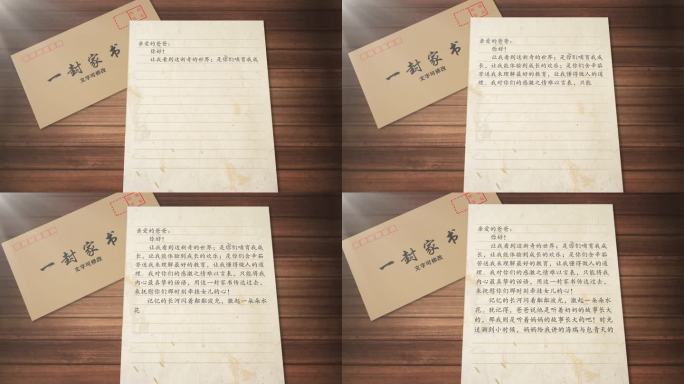 一封家书
文字可修改
亲爱的爸爸:
你好!
让我看到这新奇的世界;是你们哺育我成
一封家书
文字可修改
亲爱的爸爸:
你好!
让我看到这新奇的世界;是你们哺育我成
长,让我能体验到成长的欢乐;是你们含辛茹
苦送我来理解最好的教育,让我懂得做人的道
理。我对你们的感激之情难以言表,只能
一封家书
文字可修改
亲爱的爸爸:
你好!
让我看到这新奇的世界;是你们哺育我成
长,让我能体验到成长的欢乐;是你们含辛茹
苦送我来理解最好的教育,让我懂得做人的道
理。我对你们的感激之情难以言表,只能将我
内心最真挚的话语,用这一封家书传达过去,
来抚慰你们那时刻牵挂女儿的心!
记忆的长河闪着粼粼波光,激起一朵朵水
花
一封家书
文字可修改
亲爱的爸爸:
你好!
让我看到这新奇的世界;是你们哺育我成
长,让我能体验到成长的欢乐;是你们含辛茹
苦送我来理解最好的教育,让我懂得做人的道
理。我对你们的感激之情难以言表,只能将我
内心最真挚的话语,用这一封家书传达过去,
来抚慰你们那时刻牵挂女儿的心!
记忆的长河闪着粼粼波光,激起一朵朵水
花。犹记得,爸爸说他是听着奶奶的故事长大
的,那我则是听着妈妈的故事长大的吧!时光
追溯到小时候,妈妈给我讲的海瑞与包青天的